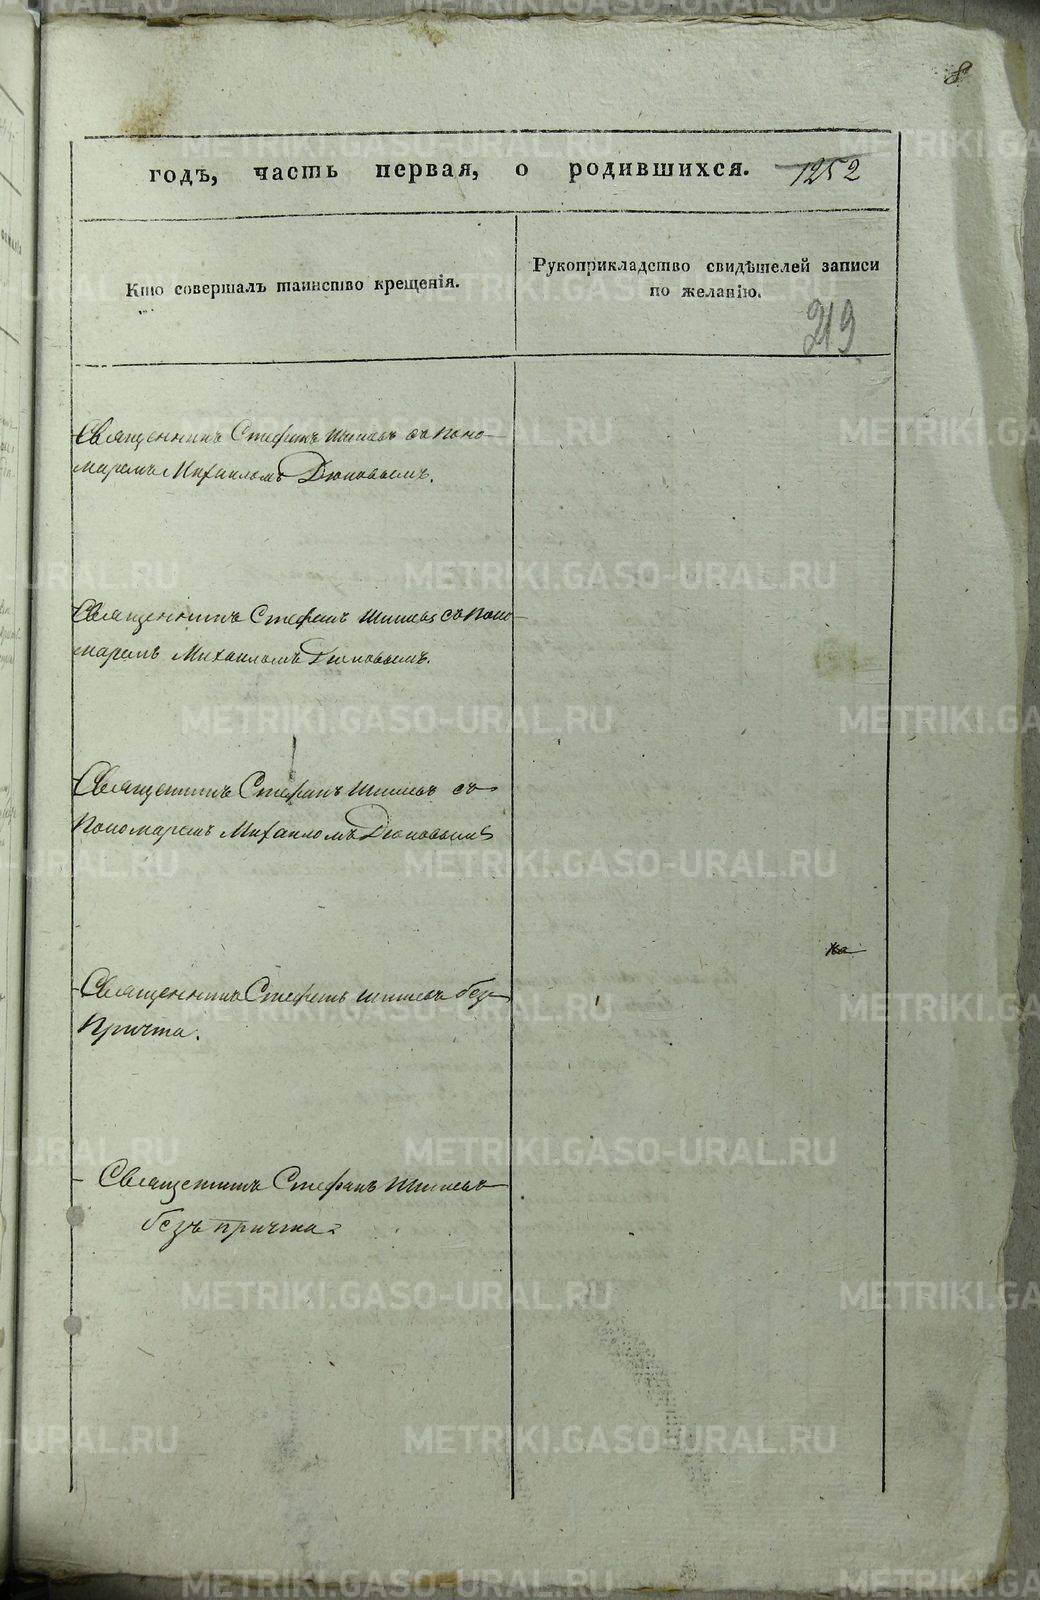 8
годъ, часть первая, о родившихся. 1252
Кто совершалъ таинство крещенія.
Рукоприкладство свидѣтелей записи
по желанію.
219
Священникъ Стефанъ Шишевъ съ поно-
маремъ Михаиломъ Дюковымъ.
Священникъ Стефанъ Шишевъ съ поно-
маремъ Михаиломъ Дюковымъ.
Священникъ Стефанъ Шишевъ съ
Пономаремъ Михаиломъ Дюковымъ
Священникъ Стефанъ Шишевъ безъ
Причта.
Священникъ Стефанъ Шишевъ
безъ причта.
METRIKI.GASO-URAL.RU